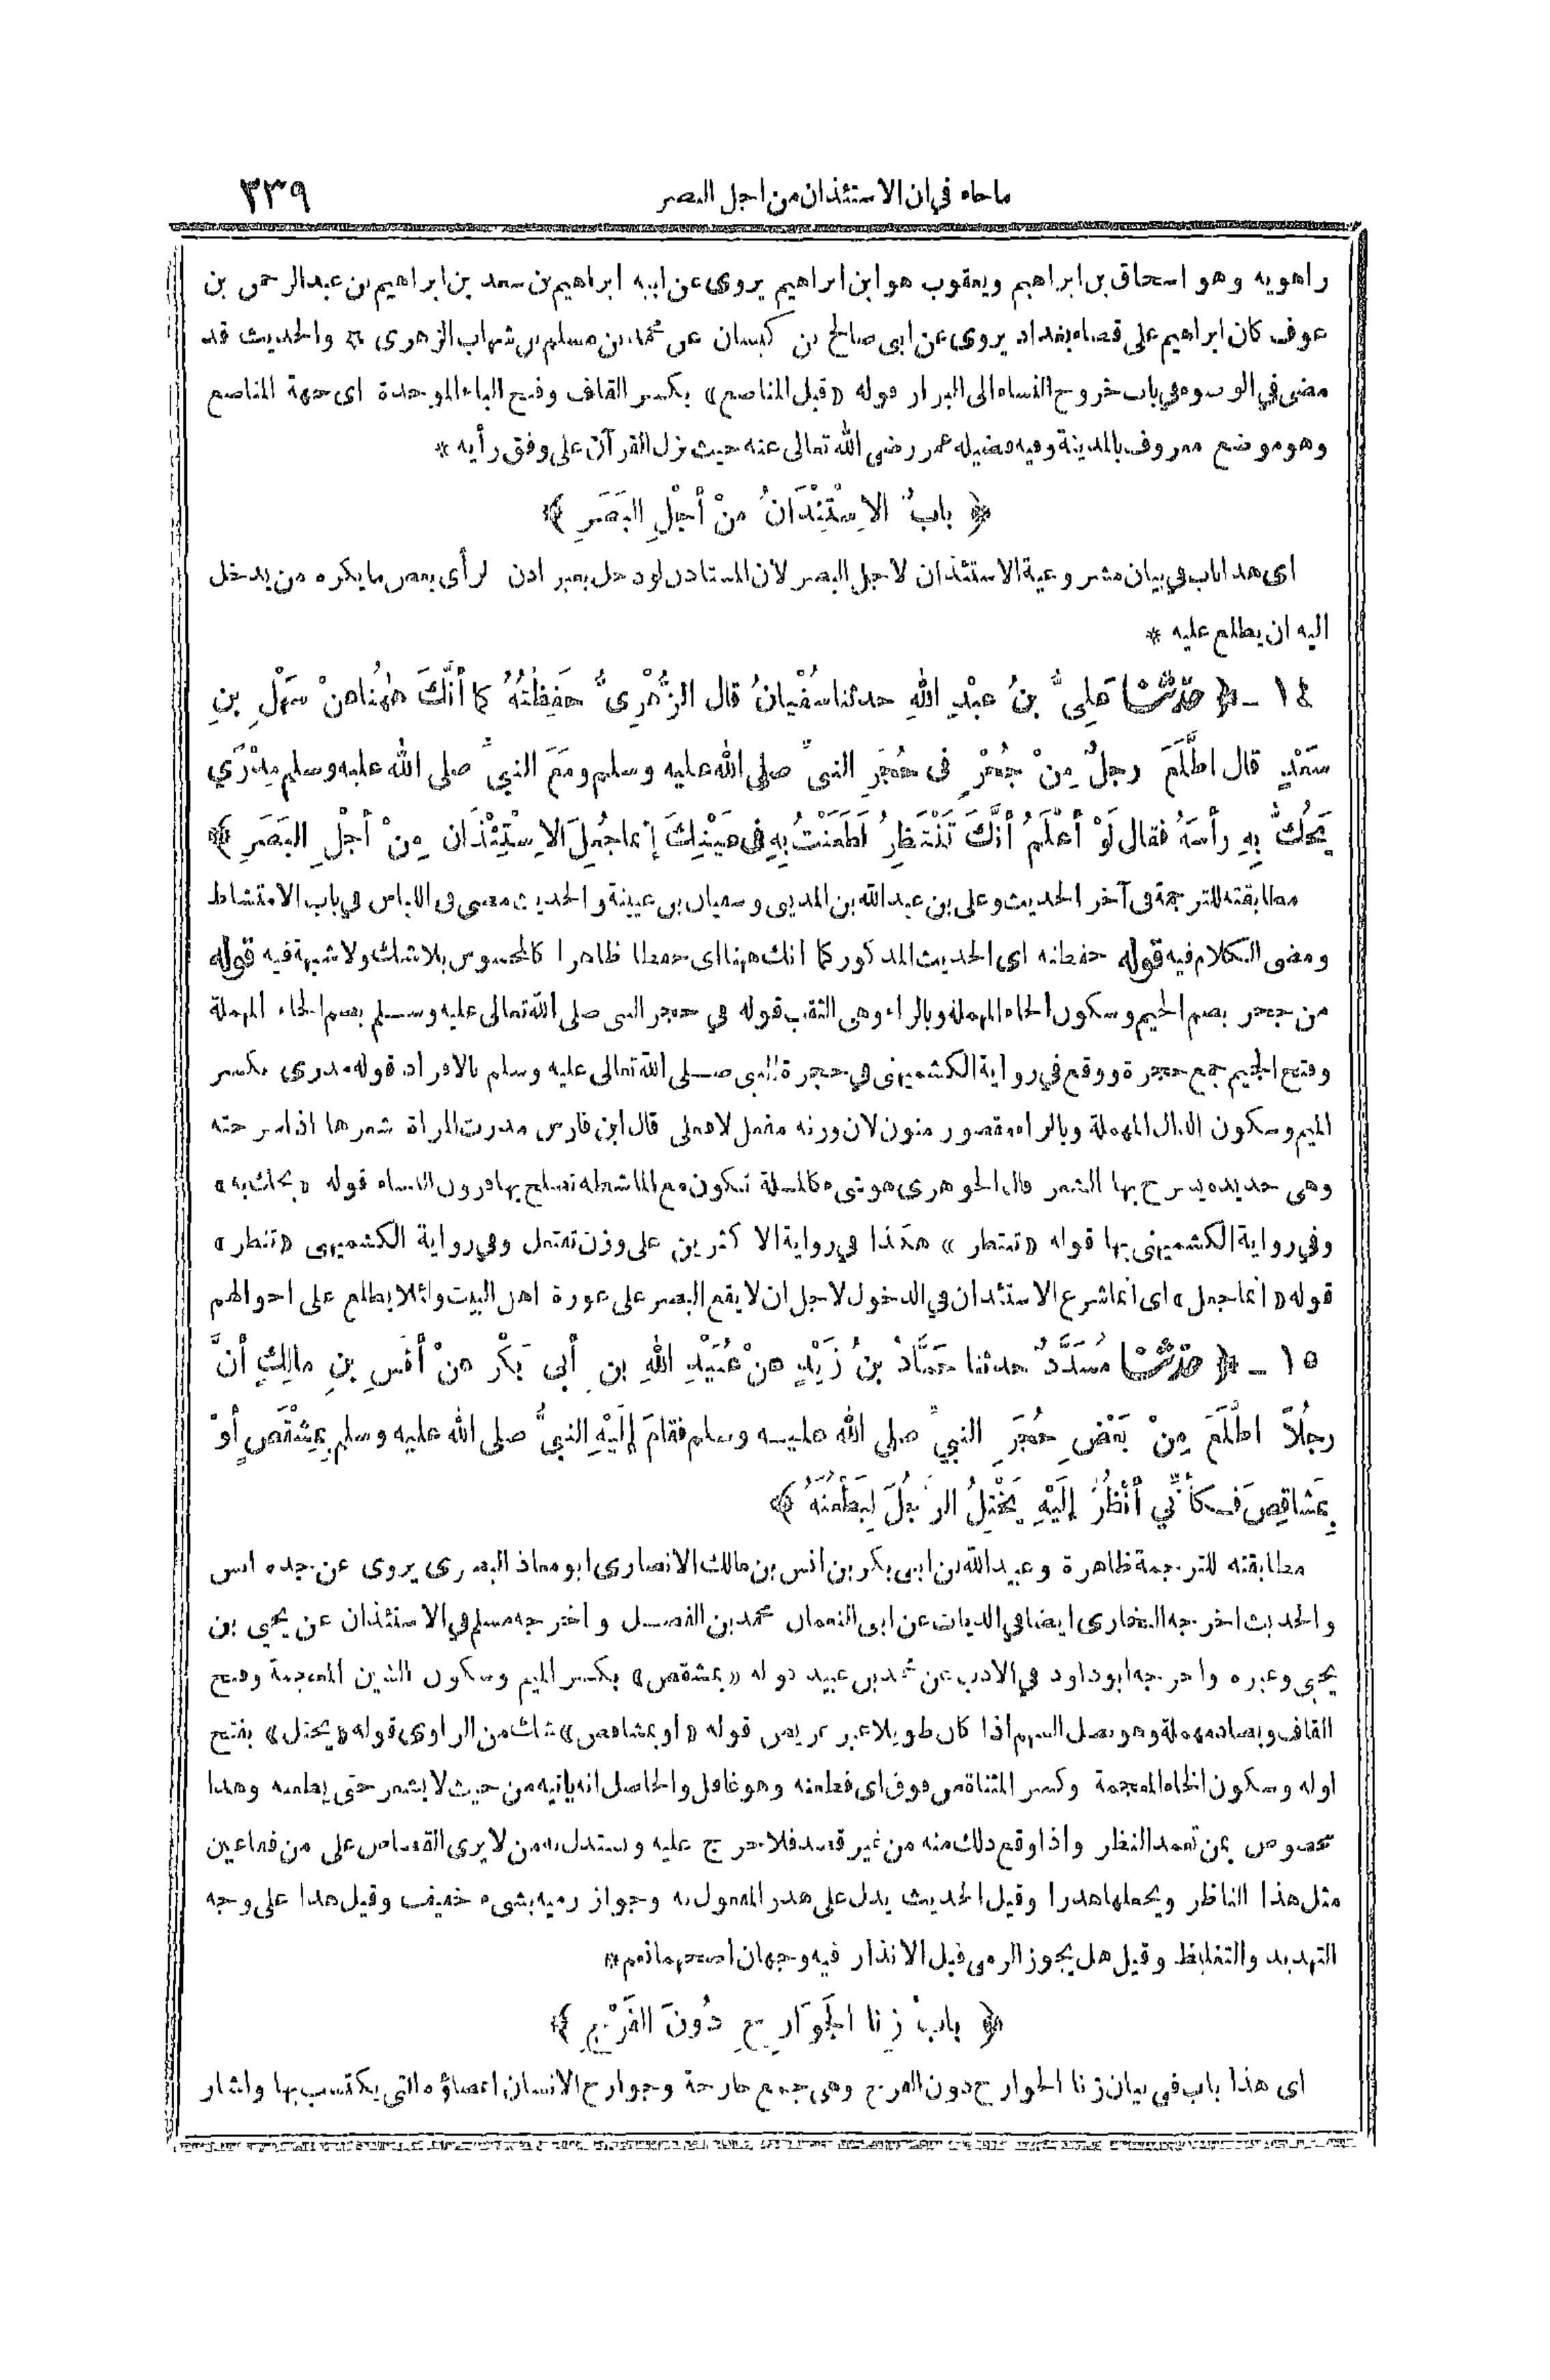 ماجاء في ان الاستئذان من اجل البصر ٣٣٩
راهويه وهو اسحاق بن ابراهيم ويعقوب هو ابن ابراهيم يروى عن ابيه ابراهيم بن سعد بن ابراهيم بن عبد الرحمن بن
عوف كان ابراهيم على قضاء بغداد يروى عن ابى صالح بن كيسان عن محمد بن مسلم بن شهاب الزهرى * والحديث قد
مضى في الوضوء في باب خروج النساء الى البراز قوله «قبل المناصع» بكسر القاف وفتح الباء الموحدة اى جهة المناصع
وهو موضع معروف بالمدينة وفيه فضيلة عمر رضى الله تعالى عنه حيث نزل القرآن على وفق رأيه *
﴿ بابُ الاِسْتِئْذَانُ مِنْ أجْلِ البَصَرِ ﴾
اى هذا باب في بيان مشروعية الاستئذان لاجل البصر لان المستاذن لو دخل بغير اذن لرأى بعض ما يكره من يدخل
اليه ان يطلع عليه *
١٤ ـ ﴿ حدّثنا عَلِىُّ بنُ عبْدِ اللهِ حدثنا سُفْيانُ قال الزُّهْرِىُّ حَفِظْتُهُ كما أنَّكَ هٰهُنا عنْ سَهْلِ بنِ
سَعْدٍ قال اطَّلَعَ رجلٌ مِنْ جُحْرٍ فى حُجَرِ النبىِّ صلى الله عليه وسلم ومَعَ النبىِّ صلى الله عليه وسلم مِدْرًى
يَحُكُّ بِهِ رأسَهُ فقال لَوْ أعْلَمُ أنَّكَ تَنْتَظِرُ لَطَعَنْتُ بِهِ فى عَيْنِكَ إنما جُعِلَ الاِسْتِئْذَان مِنْ أجْلِ البَصَرِ ﴾
مطابقته للترجمة فى آخر الحديث وعلى بن عبد الله بن المدينى وسفيان بن عيينة والحديث مضى فى اللباس في باب الامتشاط
ومضى الكلام فيه قوله حفظته اى الحديث المذكور كما انك ههنا اى حفظا ظاهرا كالمحسوس بلا شك ولا شبهة فيه قوله
من جحر بضم الجيم وسكون الحاء المهملة وبالراء وهى الثقب قوله في حجر النبى صلى الله تعالى عليه وسلم بضم الحاء المهملة
وفتح الجيم جمع حجرة ووقع في رواية الكشميهنى في حجرة النبى صلى الله تعالى عليه وسلم بالافراد قوله مدرى بكسر
الميم وسكون الدال المهملة وبالراء مقصور منون لان وزنه مفعل لا فعلى قال ابن فارس مدرت المراة شعرها اذا سرحته
وهى حديدة يسرح بها الشعر قال الجوهرى هو شىء كالمسلة تكون مع الماشطة تصلح بها قرون النساء قوله «يحك به»
وفي رواية الكشميهنى بها قوله «تنتظر» هكذا في رواية الاكثرين على وزن تفتعل وفي رواية الكشميهنى «تنظر»
قوله «انما جعل» اى انما شرع الاستئذان في الدخول لاجل ان لا يقع البصر على عورة اهل البيت ولئلا يطلع على احوالهم
١٥ ـ ﴿ حدّثنا مُسَدَّدٌ حدثنا حَمَّادُ بنُ زَيْدٍ عنْ عُبَيْدِ اللهِ بنِ أبى بَكْرٍ عنْ أنَسِ بنِ مالِكٍ أنَّ
رجُلاً اطَّلَعَ مِنْ بَعْضِ حُجَرِ النبيِّ صلى الله عليه وسلم فقامَ إلَيْهِ النبيُّ صلى الله عليه وسلم بِمِشْقَصٍ أوْ
بِمَشاقِصَ فكأنِّي أنْظُرُ إلَيْهِ يَخْتِلُ الرَّجُلَ لِيَطْعُنَهُ ﴾
مطابقته للترجمة ظاهرة وعبيد الله بن ابى بكر بن انس بن مالك الانصارى ابو معاذ البصرى يروى عن جده انس
والحديث اخرجه البخارى ايضا في الديات عن ابى النعمان محمد بن الفضل واخرجه مسلم في الاستئذان عن يحيى بن
يحيى وغيره واخرجه ابو داود في الادب عن محمد بن عبيد قوله «بمشقص» بكسر الميم وسكون الشين المعجمة وفتح
القاف وبصاد مهملة وهو نصل السهم اذا كان طويلا غير عريض قوله «او بمشاقص» شك من الراوى قوله «يختل» بفتح
اوله وسكون الخاء المعجمة وكسر المثناة من فوق اى فطعنه وهو غافل والحاصل انه يأتيه من حيث لا يشعر حتى يطعنه وهذا
مخصوص بمن تعمد النظر واذا وقع ذلك منه من غير قصد فلا حرج عليه ويستدل به من لا يرى القصاص على من فقأ عين
مثل هذا الناظر ويجعلها هدرا وقيل الحديث يدل على هدر المفعول به وجواز رميه بشىء خفيف وقيل هذا على وجه
التهديد والتغليظ وقيل هل يجوز الرمى قبل الانذار فيه وجهان اصحهما نعم *
﴿ بابُ زِنا الجَوَارِحِ دُونَ الفَرْجِ ﴾
اى هذا باب في بيان زنا الجوارح دون الفرج وهى جمع جارحة وجوارح الانسان اعضاؤه التى يكتسب بها واشار